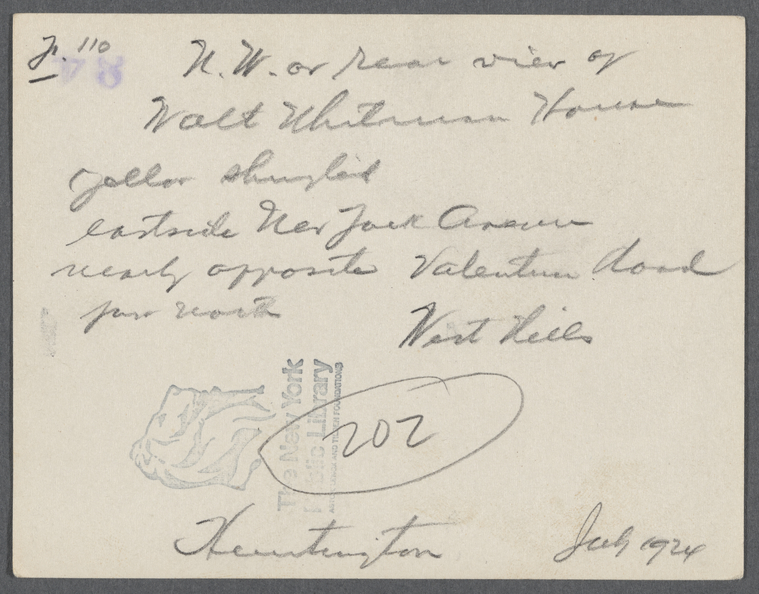 F. 110
84
N. W. or rear view of
Walt Whitman House
yellow shingled
eastside New York Avenue
nearly opposite Valentine Road
north
West Hills
The New York
Public Library
ASTOR, LENOX AND TILDEN FOUNDATIONS
202
Huntington July 1924